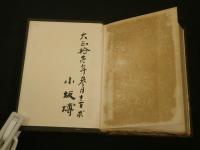 大正拾壱年参月十一日求
小坂博